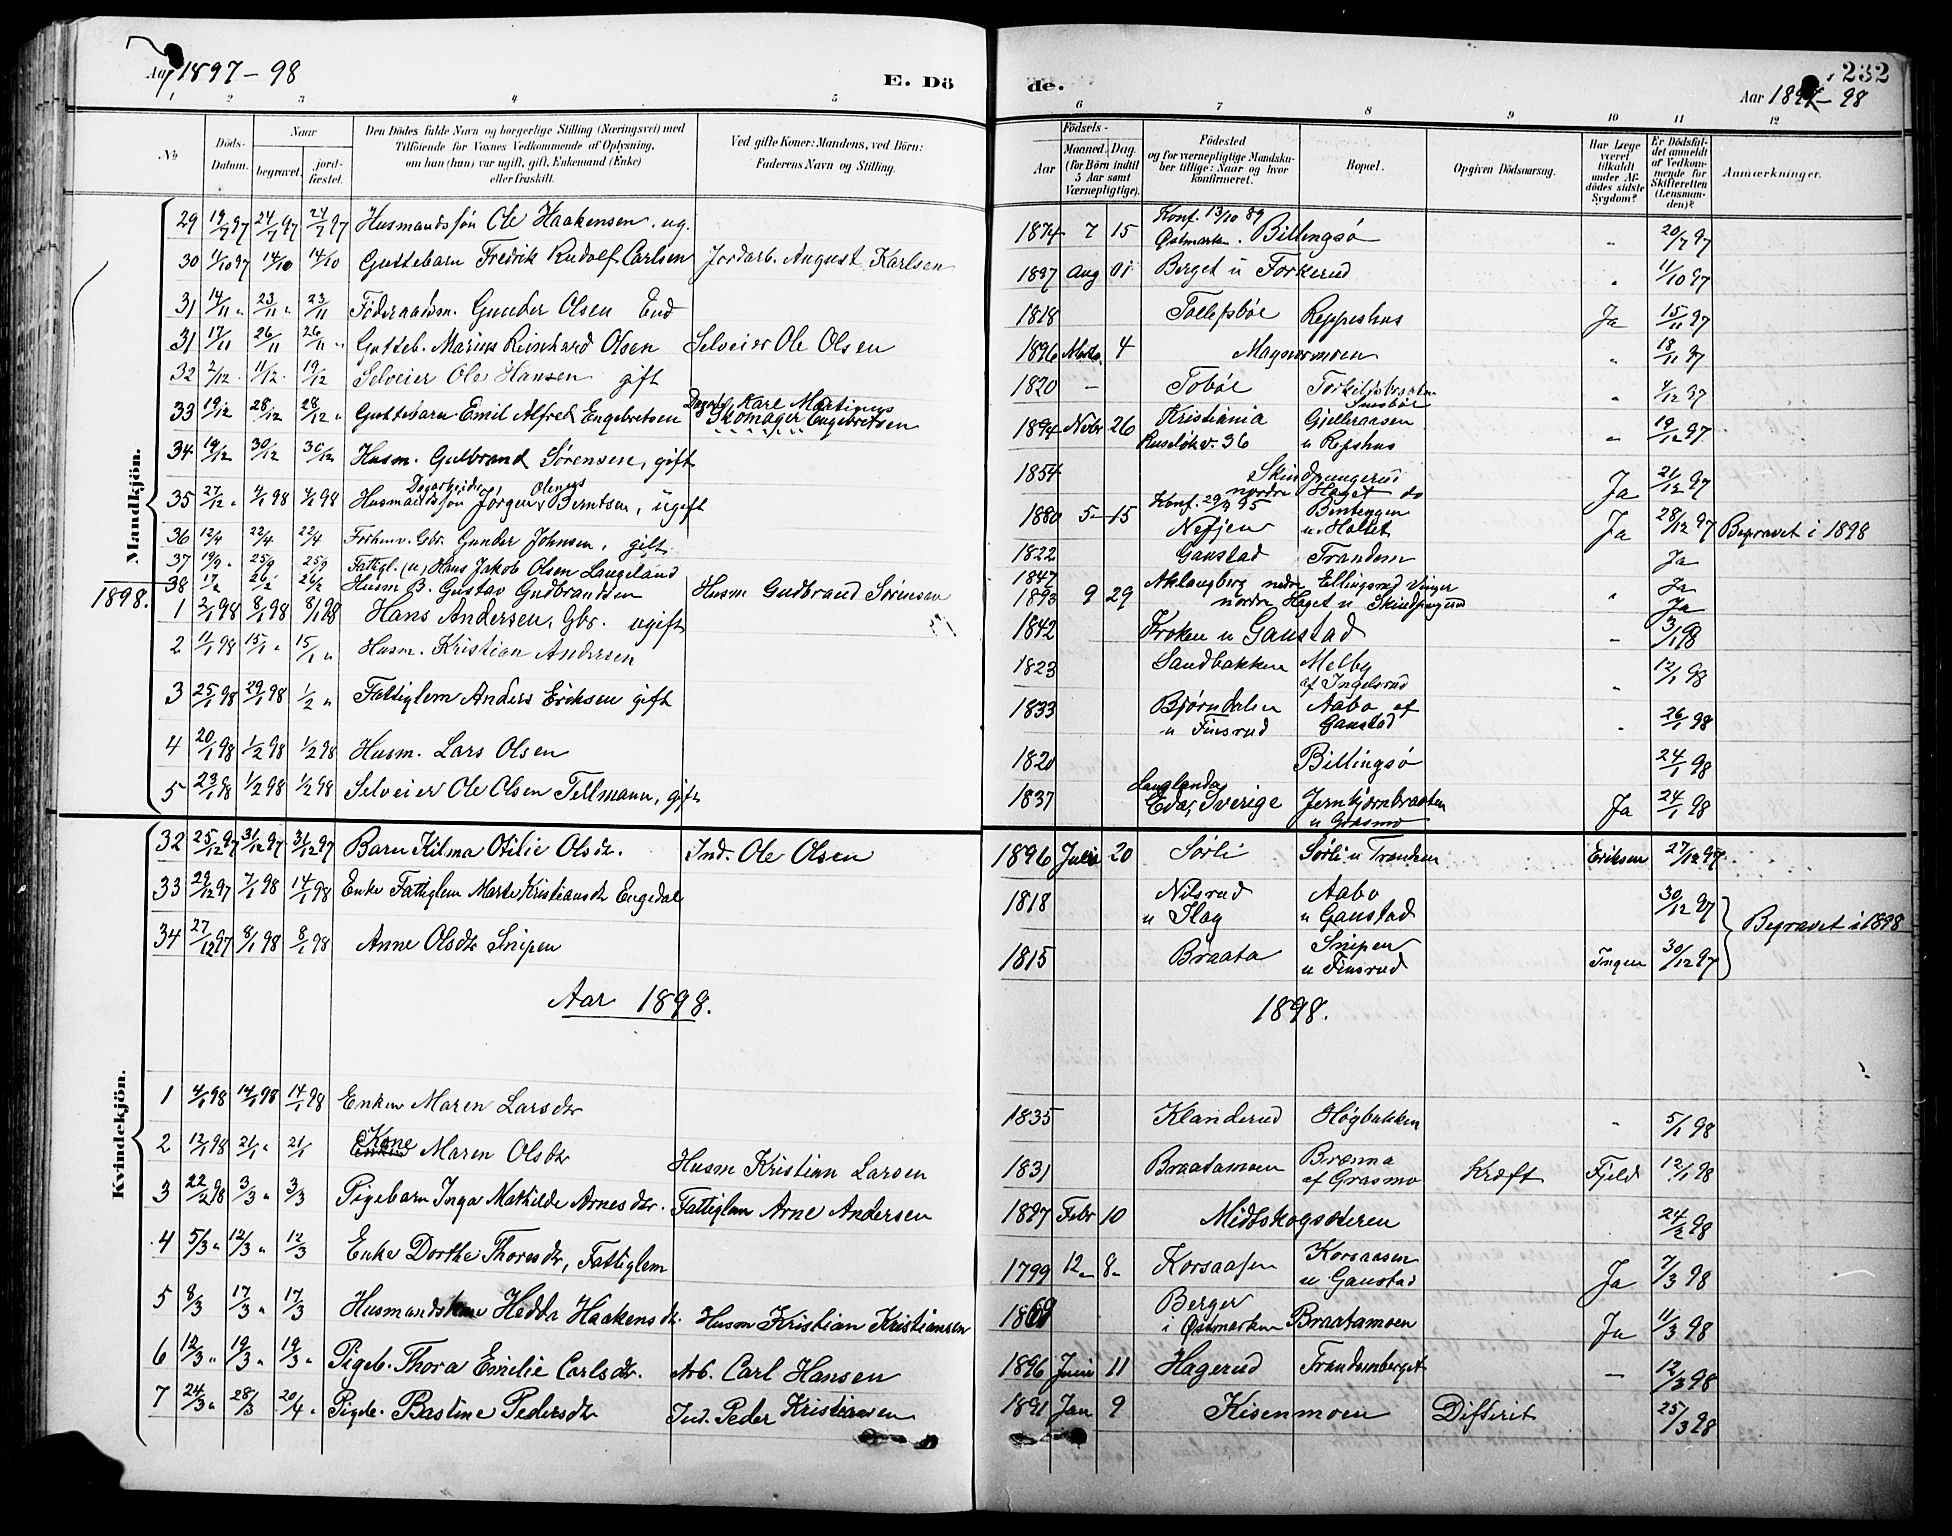 Aar 1897-98
E. Döde.
232
Aar 1897-98
1 2 3 4 5 6 7 8 9 10 11 12
No
Döds-Datum.
Naar
begravet.
jordfæstet.
Den Dödes fulde Navn og borgerlige Stilling (Næringsvei) med
Tilföiende for Voxnes Vedkommende af Oplysning,
om han (hun) var ugift, gift, Enkemand (Enke)
eller fraskilt.
Ved gifte Koner: Mandens, ved Börn:
Faderens Navn og Stilling.
Födsels-
Aar
Maaned. Dag.
(for Börn indtil
5 Aar samt
Værnepligtige).
Födested
og for værnepligtige Mandskaber tillige: Naar og hvor
konfirmeret.
Bopæl.
Opgiven Dödsaarsag.
Har Læge
været
tilkaldt
under Afdödes sidste
Sygdom?
Er Dödsfaldet anmeldt
af Vedkommende for
Skifteretten
(Lensmanden)?
Anmærkninger.
Mandkjön.
29 19/7 97 24/7 97 24/7 97 Husmandssøn Ole Haakensen, ug. 1874 7 15 Konf. 13/10 89 Østmarken. Billingsø " 20/7 97
30 1/10 97 14/10 14/10 Guttebarn Fredrik Rudolf Carlsen Jordarb. August Karlsen 1897 Aug 01 Berget u Torkerud " 11/10 97
31 14/11 " 23/11 " 23/11 Føderaadsm. Gunder Olsen End 1818 Tollefsbøe Reppeshus Ja 15/11 97
31 17/11 26/11 26/11 " Gutteb. Marius Reinhard Olsen Selveier Ole Olsen 1896 4 Magnormoen " 18/11 97
32 2/12 11/12 19/12 Selveier Ole Hansen gift 1820 - Tobøe " 4/12 97
33 19/12 28/12 28/12 " Guttebarn Emil Alfred Engebretsen Karl Martinus Skomager Engebretsen 1894 Novbr 26 Kristiania Ruseløkv. 36 Gjelleraasen u Refshus " 19/12 97
34 19/12 30/12 30/12 Husm. Gulbrand Sørensen, gift 1854 Skindpungerud nordre Haget do Ja 21/12 97
35 27/12 " 4/1 98 4/1 98 Dagarbeider, Husmandssøn Jørgen Olenus Berntsen, ugift 1880 5 15 Konf. 29/9 95 Nefjen u. Holset Ja 28/12 97 Begravet i 1898
36 12/4 22/4 22/4 Forhenv. Gbr. Gunder Johnsen, gift 1822 Ganstad Trandem Ja
37 19/9 " 25/9 25/9 Fattigl. (u) Hans Jakob Olsen Langeland 1847 Aklangberg nedre Ellingsrud Vinger Ja
38 17/2 26/2 26/2 Husm B. Gustav Gudbrandsen Husm Gudbrand Sørensen 1893 9 29 nordre Haget u Skindpungerud " Ja
1898.
1 2/1 98 8/1 98 8/1 98 Hans Andersen, Gbr. ugift 1842 Kroken u Ganstad - 3/1 98
2 11/1 98 15/1 " 15/1 " Husm. Kristian Andersen 1823 Sandbakken Melby af Ingelsrud " 12/1 98
3 25/1 98 29/1 98 1/2 " Fattiglem Anders Eriksen gift 1833 Bjørndalen u Finsrud Aabo af Ganstad " 26/1 98
4 20/1 98 1/2 98 1/2 98 Husm. Lars Olsen 1820 Billingsø 24/1 98
5 23/1 98 1/2 98 1/2 98 Selveier Ole Olsen Tellmann, gift 1837 Langlanda Eda, Sverige Jernbjørnbraaten u Grasmo Ja 24/1 98
Kvindekjön.
32 25/12 97 31/12 97 31/12 97 Barn Kilma Otilie Olsdr. Ind. Ole Olsen 1896 Juli 20 Sørli Sørli u Trandem Eriksen 27/12 97
33 29/12 97 7/1 98 14/1 98 Enke Fattiglem Marte Kristiansdr Engedal 1818 Nilsrud u Slag Aabo u Ganstad 30/12 97
34 27/12 97 8/1 98 8/1 98 Anne Olsdr Snipen 1815 Braata Snipen u Finsrud Ingen 30/12 97 Begravet i 1898
Aar 1898. 1898.
1 4/1 98 14/1 98 14/1 98 Enken Maren Larsdr 1835 Klanderud Høgbakken " 5/1 98
2 12/1 98 21/1 " 21/1 Kone Enken Maren Olsdr Husm Kristian Larsen 1831 Braatamoen Brænna af Grasmo Kræft Fjeld 12/1 98
3 22/2 98 3/3 " 3/3 Pigebarn Inga Mathilde Arnesdr. Fattiglem Arne Andersen 1897 Febr 10 Midtskogsæteren 24/2 98
4 5/3 " 12/3 " 12/3 Enke Dorthe Thoresdr, Fattiglem 1799 12 8 Korsaasen Korsaasen u Ganstad Ja 7/3 98
5 8/3 17/3 " 17/3 Husmandskone Hedda Haakensdr. Husm Kristian Kristiansen Berger i Østmarken Braatamoen Ja 11/3 98
6 12/3 " 19/3 " 19/3 " Pigeb. Thora Emilie Carlsdr. Arb. Carl Hansen 1896 Juni 11 Hagerud Trandemberget - 12/3 98
7 24/3 " 28/3 20/4 " Pigeb. Bastine Pedersdr Ind. Peder Kristiansen 1891 Jan 9 Kisenmoen Difterit 25/3 98